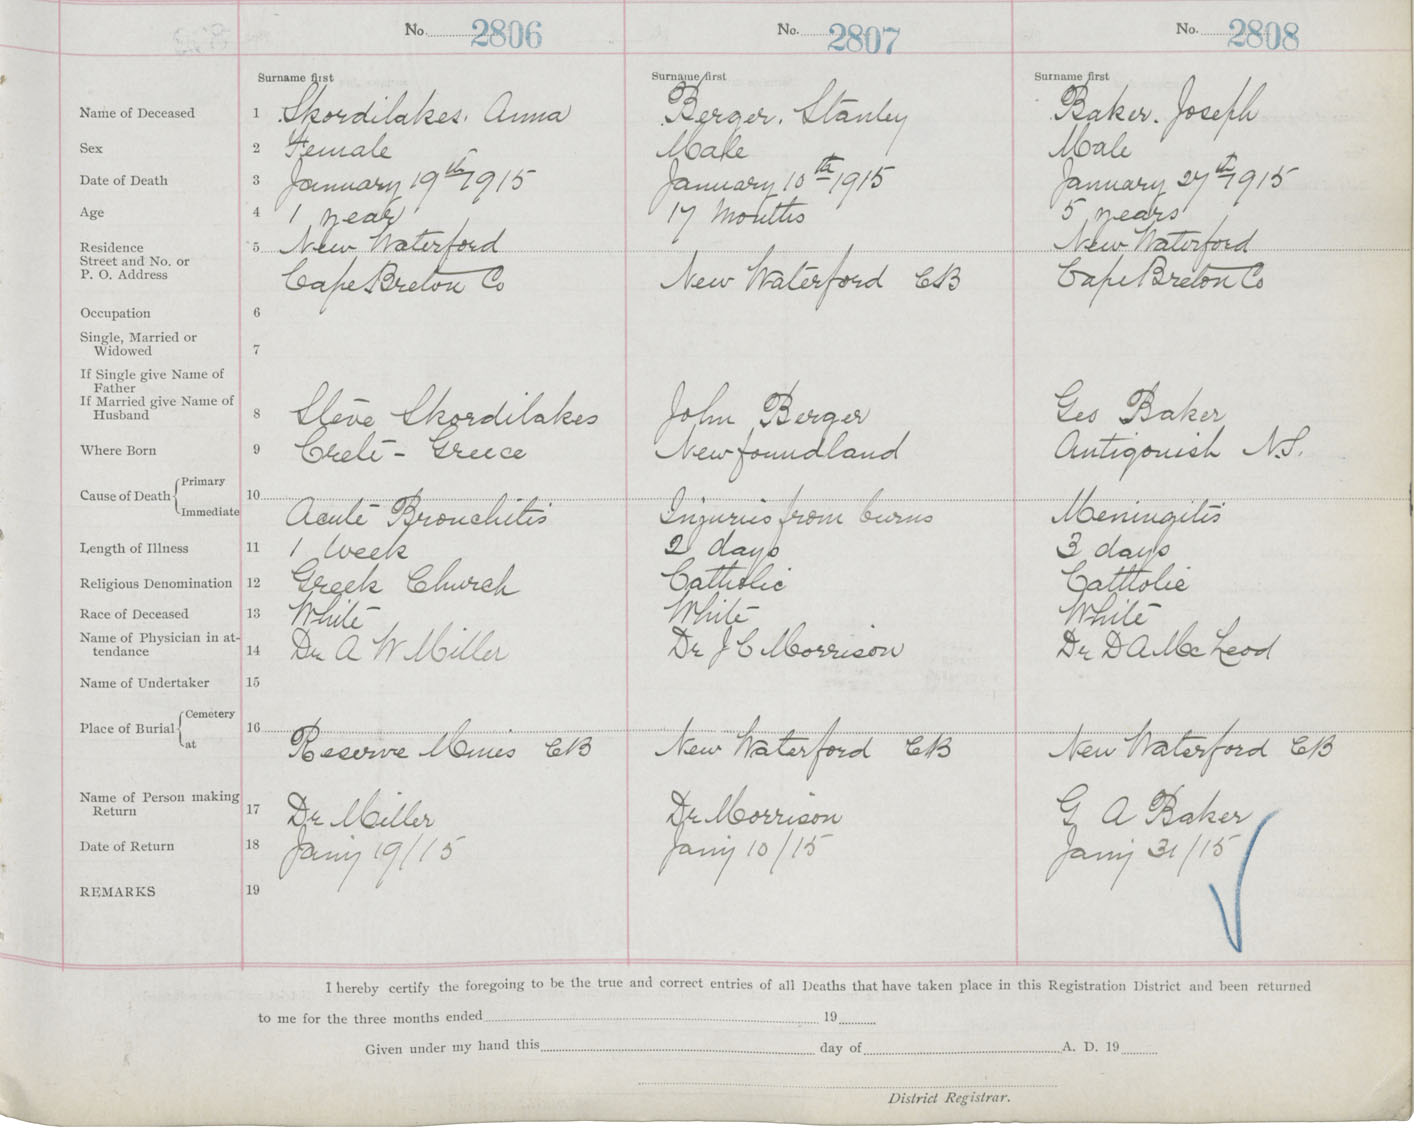 No. 2806 No. 2807 No. 2808
Surname first Surname first Surname first
Name of Deceased 1 Skordilakes. Anna Berger. Stanley Baker. Joseph
Sex 2 Female Male Male
Date of Death 3 January 19th 1915 January 10th 1915 January 27th 1915
Age 4 1 year 17 Months 5 years
Residence 5 New Waterford New Waterford
Street and No. or
P. O. Address Cape Breton Co New Waterford CB Cape Breton Co
Occupation 6
Single, Married or
Widowed 7
If Single give Name of
Father
If Married give Name of
Husband 8 Steve Skordilakes John Berger Geo Baker
Where Born 9 Crete - Greece Newfoundland Antigonish N.S.
Cause of Death Primary 10
Immediate Acute Bronchitis Injuries from burns Meningitis
Length of Illness 11 1 Week 2 days 3 days
Religious Denomination 12 Greek Church Catholic Catholic
Race of Deceased 13 White White White
Name of Physician in at-
tendance 14 Dr A W Miller Dr J C Morrison Dr D A McLeod
Name of Undertaker 15
Place of Burial Cemetery 16
at Reserve Mines CB New Waterford CB New Waterford CB
Name of Person making
Return 17 Dr Miller Dr Morrison G A Baker
Date of Return 18 Jany 19/15 Jany 10/15 Jany 31/15
REMARKS 19
I hereby certify the foregoing to be the true and correct entries of all Deaths that have taken place in this Registration District and been returned
to me for the three months ended 19
Given under my hand this day of A. D. 19
District Registrar.